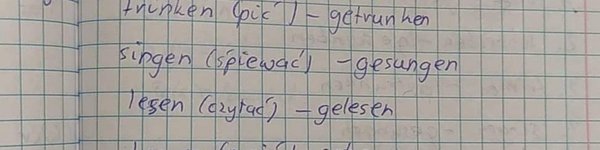 trinken (pić) – getrunken
singen (śpiewać) – gesungen
lesen (czytać) – gelesen